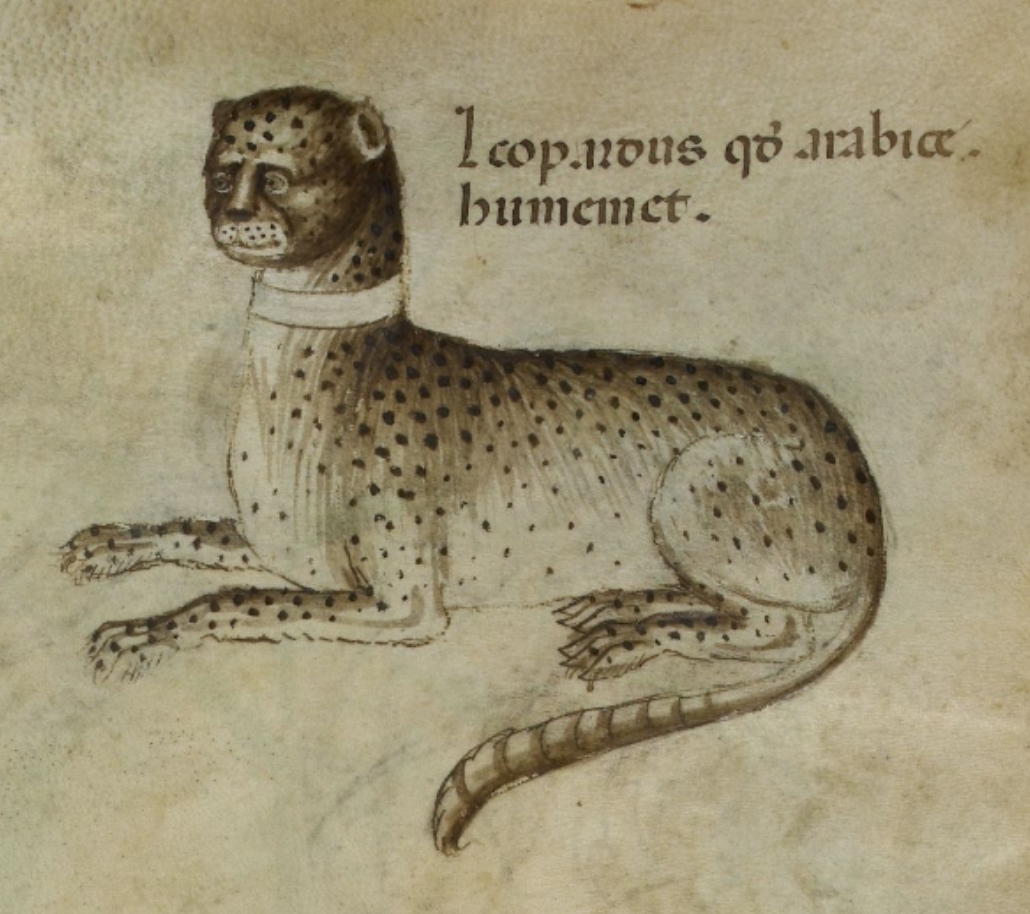 Leopardus qđ arabice.
humemet.